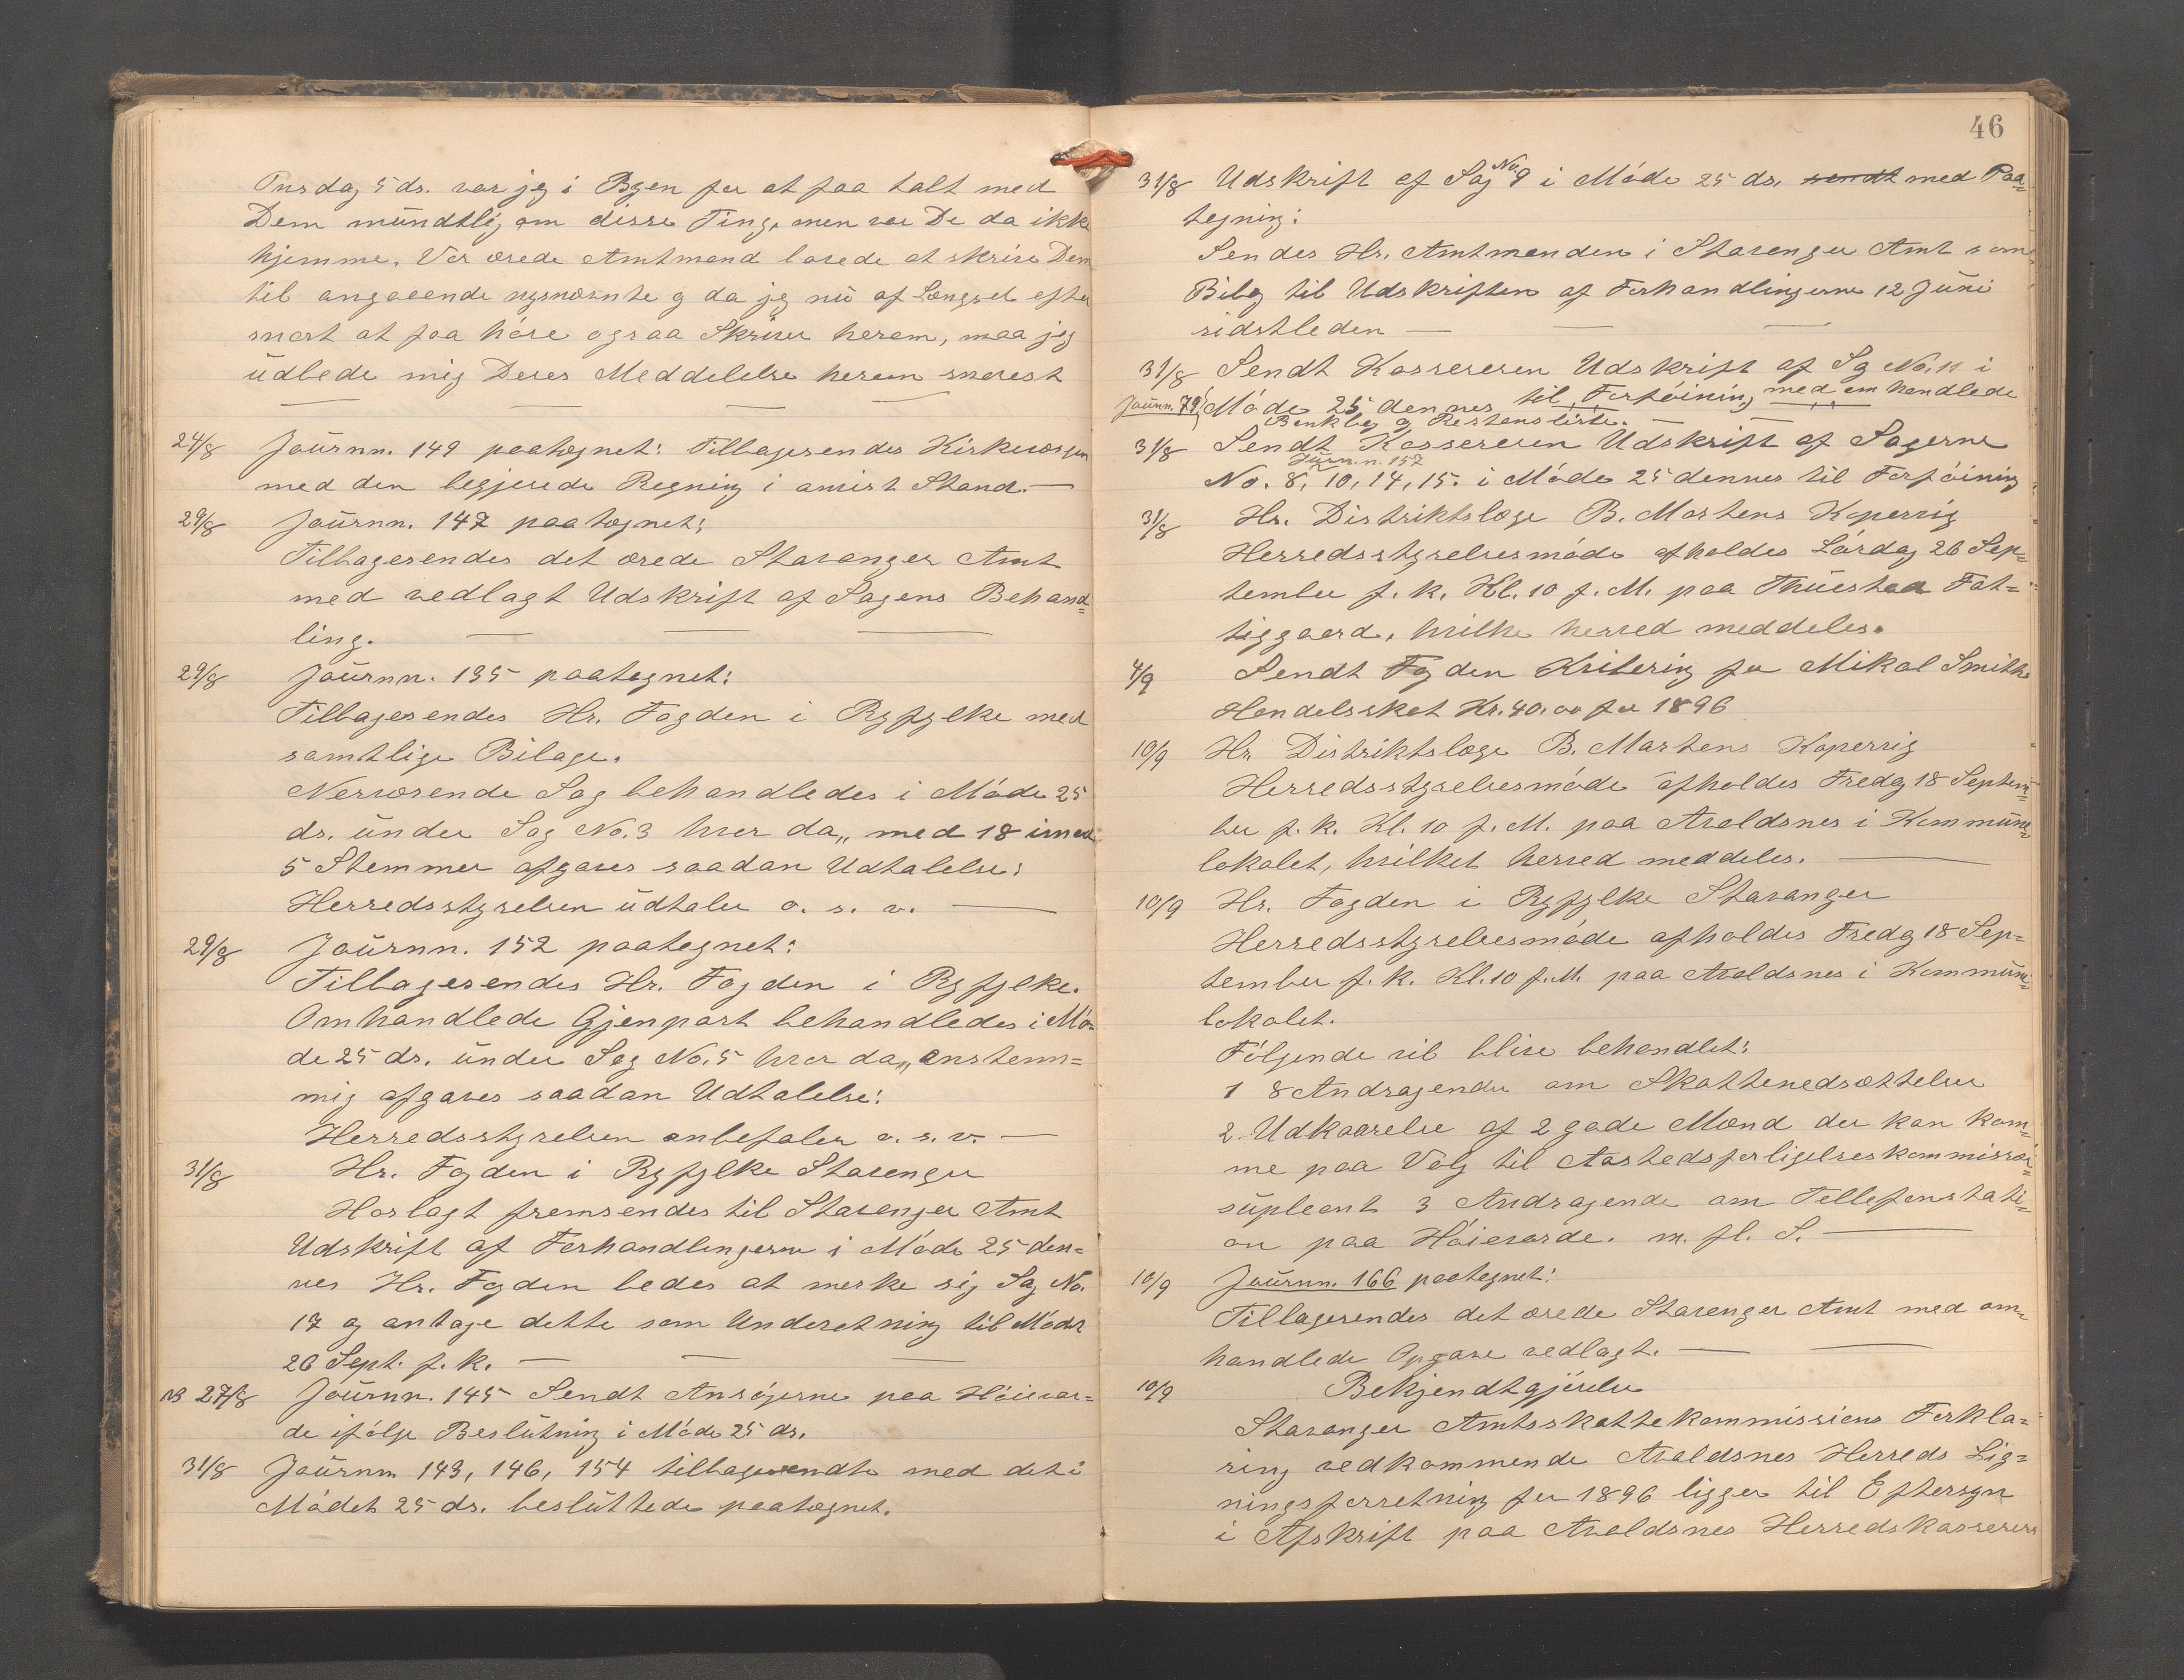 Onsdag 5 ds. var jeg i Byen for at faa talt med
Dem mündtlig om disse Ting, men var De da ikke
hjemme. Vor ærede Amtmand lovede at skrive Dem
til angaaende nysnævnte og da jeg nü af Længsel efter
snart at faa høre ogsaa Skriver herom, maa jeg
üdbede mig Deres Meddelelse herom snarest
24/8 Joürnn. 149 paategnet: Tilbagesendes Kirkeværgen
med den begjerede Regning i anvist Stand.
29/8 Joürnn. 147 paategnet:
Tilbagesendes det ærede Stavanger Amt
med vedlagt Udskrift af Sagens Behand=
ling.
29/8 Joürnn. 135 paategnet:
Tilbagesendes Hr. Fogden i Ryfylke med
samtlige Bilage.
Nerværende Sag behandledes i Møde 25
ds. ünder Sag No. 3 hvor da „med 18 imod
5 Stemmer afgaves saadan Udtalelse:
Herredsstyrelsen üdtaler o. s. v.
29/8 Joürnn. 152 paategnet:
Tilbagesendes Hr. Fogden i Ryfylke.
Omhandlede Gjenpart behandledes i Mø=
de 25 ds. ünder Sag No. 5 hvor da „enstem=
mig afgaves saadan Udtalelse:
Herredsstyrelsen anbefaler o. s. v.
31/8 Hr. Fogden i Ryfylke Stavanger
Hoslagt fremsendes til Stavanger Amt
Udskrift af Forhandlingerne i Møde 25 den=
nes Hr. Fogden bedes at merke sig Sag No.
17 og antage dette som Underetning til Mødet
26 Sept. f. k.
NB 27/8 Joürnn. 145 Sendt Ansøgerne paa Høievar=
de ifølge Beslütning i Møde 25 ds.
31/8 Joürnn 143, 146, 154 tilbagesendt med det i
Mødet 25 ds. beslüttede paategnet.
46
31/8 Udskrift af Sag No. 9 i Møde 25 ds. sendt med Paa=
tegning:
Sendes Hr. Amtmanden i Stavanger Amt som
Bilag til Udskriften af Forhandlingerne 12 Jüni
sidstleden
31/8 Sendt Kassereren Udskrift af Sag No. 11 i
Joürnn. 79 Møde 25 dennes til Forføining med omhandlede
Bankbog og Restensliste.
31/8 Sendt Kassereren Udskrift af Sagerne
Jürn. n. 157
No. 8, 10, 14, 15. i Møde 25 dennes til Forføining
31/8 Hr. Distriktslæge B. Martens Kopervig
Herredsstyrelsesmøde afholdes Lørdag 26 Sep=
tember f. k. Kl. 10 f. M. paa Thüestaa Fat=
tiggaard, hvilke herved meddeles.
4/9 Sendt Fogden Kvitering for Mikal Smiths
Handelsskat Kr. 40.00 for 1896
10/9 Hr. Distriktslæge B. Martens Kopervig
Herredsstyrelsesmøde afholdes Fredag 18 Septem=
ber f. k. Kl. 10 f. M. paa Avaldsnes i Kommüne=
lokalet, hvilket herved meddeles.
10/9 Hr. Fogden i Ryfylke Stavanger
Herredsstyrelsesmøde afholdes Fredag 18 Sep=
tember f. k. Kl. 10 f. M. paa Avaldsnes i Kommüne=
lokalet.
Følgende vil blive behandlet:
1 8 Andragender om Skattenedsættelser
2. Udkaarelse af 2 gode Mænd der kan kom=
me paa Valg til Aastedsforligelseskommissær=
süpleant 3 Andragende om Tellefonstati=
on paa Høievarde. m. fl. S.
10/9 Joürnn. 166 paategnet:
Tilbagesendes det ærede Stavanger Amt med om=
handlede Opgave vedlagt.
10/9 Bekjendtgjørelse
Stavanger Amtsskattekommissions Forkla=
ring vedkommende Avaldsnes Herreds Lig=
ningsforretning for 1896 ligger til Eftersyn
i Afskrift paa Avaldsnes Herredskasserers